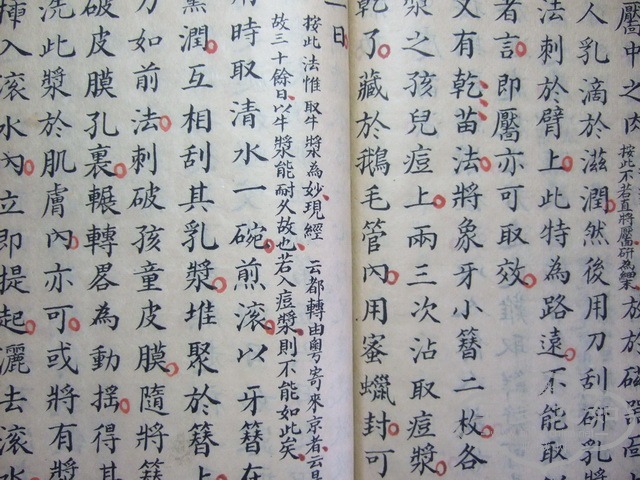 靨中之肉按此不若直將靨研為細末放於磁器
人乳滴於滋潤然後用刀刮研乳漿
法刺於臂上此特為路遠不能取
者言即靨亦可取效
又有乾苗法將象牙小簪二枚各
漿之孩兒痘上兩三次沾取痘漿
乾了藏於鵝毛管內用蜜蠟封可
一日
按此法惟取牛漿為妙現經 云都轉由粵寄來京者云是
故三十餘日以牛漿能耐久故也若入痘漿則不能如此矣
時取清水一碗煎滾以牙簪在
潤互相刮其乳漿堆聚於簪上
刀如前法刺破孩童皮膜隨將簪
破皮膜孔裏輾轉畧為動搖得其
洗此漿於肌膚內亦可或將有漿
揷入滾水內立即提起灑去滾水